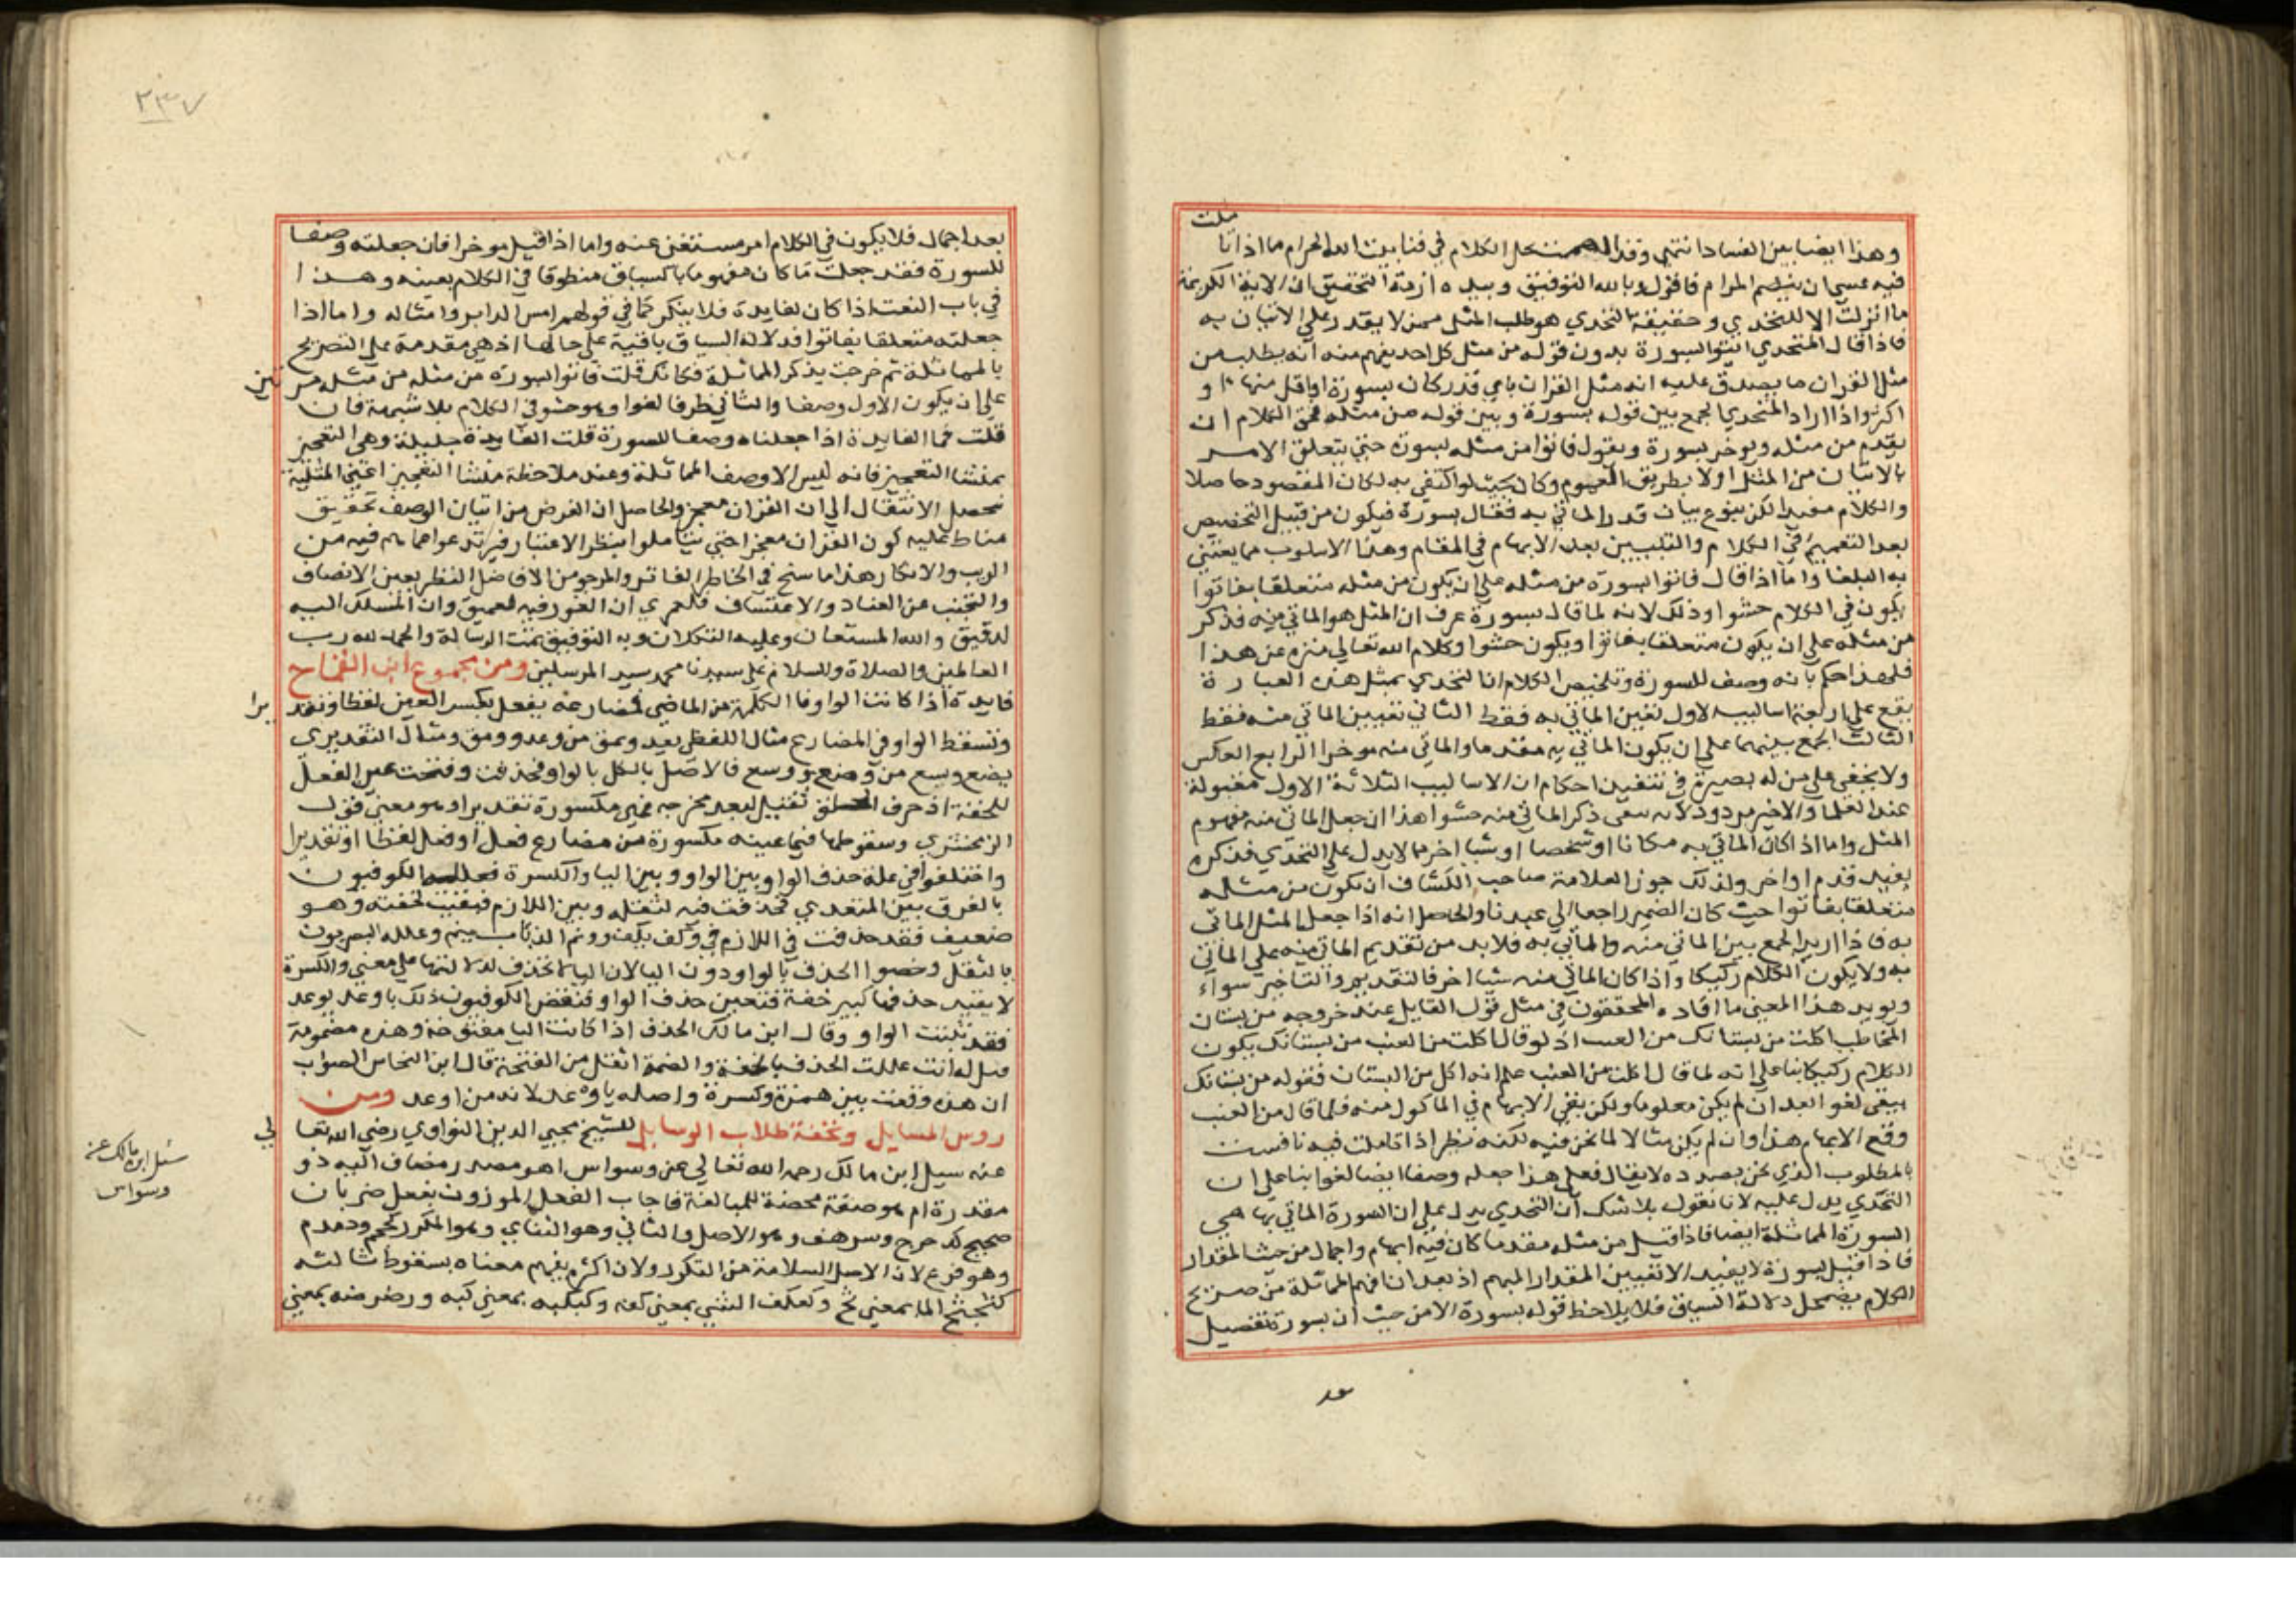 ملت
وهذا ايضا بين الفساد انتهى وقد الهمت بحل الكلام في فنا بيت الله الحرام ما اذا تا
فيه عسى ان يتضح المرام فاقول وبالله التوفيق وبيده ازمة التحقيق ان الاية الكريمة
ما انزلت الا للتحدي وحقيقة التحدي هو طلب المثل ممن لا يقدر على الاتيان به
فاذا قال المتحدي ايتوا بسورة بدون قوله من مثل كل احد يفهم منه انه يطلب من
مثل القران ما يصدق عليه انه مثل القران باي قدر كان بسورة او اقل منها او
اكثر واذا اراد المتحدي الجمع بين قوله بسورة وبين قوله من مثله فحق الكلام ان
يقدم من مثله ويوخر بسورة ويقول فاتوا من مثله بسورة حتى يتعلق الامر
بالاتيان من المثل اولا بطريق العموم وكان بحيث لو اكتفى به لكان المقصود حاصلا
والكلام مفيدا لكن تبرع ببيان قدر الماتي به فقال بسورة فيكون من قبيل التخصيص
بعد التعميم في الكلام والتبيين بعد الابهام في المقام وهذا الاسلوب مما يعتني
به البلغا واما اذا قال فاتوا بسورة من مثله على ان يكون من مثله متعلقا بفاتوا
يكون في الكلام حشوا وذلك لانه لما قال بسورة عرف ان المثل هو الماتي منه فذكر
من مثله على ان يكون متعلقا بفاتوا ويكون حشوا وكلام الله تعالى منزه عن هذا
فلهذا حكم بانه وصف للسورة وتلخيص الكلام ان التحدي بمثل هذه العبارة
يقع على اربعة اساليب الاول تعيين الماتي به فقط الثاني تعيين الماتي منه فقط
الثالث الجمع بينهما على ان يكون الماتي به مقدما والماتي منه موخرا الرابع العكس
ولا يخفى على من له بصيرة في تنقيد احكام ان الاساليب الثلاثة الاول مقبولة
عند العلما والاخير مردود لانه يبقى ذكر الماتي منه حشوا هذا ان جعل الماتي منه مفهوم
المثل واما اذا كان الماتي به مكانا او شخصا او شيا اخر مما لا يدل على التحدي فذكره
يفيد قدم او اخر ولذلك جوز العلامة صاحب الكشاف ان يكون من مثله
متعلقا بفاتوا حيث كان الضمير راجعا الى عبدنا والحاصل انه اذا جعل المثل الماتي
به فاذا اريد الجمع بين الماتي منه والماتي به فلابد من تقديم الماتي منه على الماتي
به ولا يكون الكلام ركيكا واذا كان الماتي منه شيا اخر فالتقديم والتاخير سواء
ويويد هذا المعنى ما افاده المحققون في مثل قول القايل عند خروجه من بستان
المخاطب اكلت من بستانك من العنب اذ لو قال اكلت من العنب من بستانك يكون
الكلام ركيكا بنا على انه لما قال اكلت من العنب علم انه اكل من البستان فقوله من بستانك
يبقى لغوا بعد ان لم يكن معلوما ولكن بقي الابهام في الماكول منه فلما قال من العنب
وقع الابهام هذا وان لم يكن مثالا لما نحن فيه لكنه نظير اذا تاملت فيه نافست
بالمطلوب الذي نحن بصدده لا يقال فعلى هذا جعله وصفا ايضا لغوا بنا على ان
التحدي يدل عليه لانا نقول بلا شك ان التحدي يدل على ان السورة الماتي بها هي
السورة المماثلة ايضا فاذا قيل من مثله مقدما كان فيه ابهام واجمال من حيث المقدار
فاذا قيل بسورة لا يفيد الا تعيين المقدار المبهم اذ بعد ان افهم المماثلة من صريح
الكلام يضمحل دلالة السياق فلا يلاحظ قوله بسورة الا من حيث ان بسورة تفصيل
بعد
٢٣٧
بعد اجمال فلا يكون في الكلام امر مستغنى عنه واما اذا قيل موخرا فان جعلته وصفا
للسورة فقد جعلت ما كان مفهوما بالسياق منطوقا في الكلام بعينه وهذا
في باب النعت اذا كان لفايدة فلا ينكر كما في قولهم امس الدابر وامثاله واما اذا
جعلته متعلقا بفاتوا فدلالة السياق باقية على حالها اذ هي مقدمة على التصريح
بالمماثلة ثم خرجت بذكر المماثلة فكانك قلت فاتوا بسورة من مثله من مثله مر تين
على ان يكون الاول وصفا والثاني ظرفا لغوا وهو حشو في الكلام بلا شبهة فان
قلت فما الفايدة اذا جعلناه وصفا للسورة قلت الفايدة جليلة وهي التعجيز
بمنشا التعجيز فانه ليس الا وصف المماثلة وعند ملاحظة منشا التعجيز اعني المثلية
يحصل الانتقال الى ان القران معجز والحاصل ان الغرض من اتيان الوصف تحقيق
مناط عليه كون القران معجزا حتى يتاملوا بنظر الاعتبار فيرتدعوا عما هم فيه من
الريب والانكار هذا ما سنح في الخاطر الفاتر والمرجو من الافاضل النظر بعين الانصاف
والتجنب عن العناد والاعتساف فلعمري ان الغور فيه لعميق وان المسلك اليه
لدقيق والله المستعان وعليه التكلان وبه التوفيق تمت الرسالة والحمد لله رب
العالمين والصلاة والسلام على سيدنا محمد سيد المرسلين ومن مجموع ابن القماح
فايدة اذا كانت الواو فا الكلمة من الماضي فمضارعه يفعل بكسر العين لفظا وتقد يرا
وتسقط الواو في المضارع مثال اللفظي يعد ويمق من وعد وومق ومثال التقديري
يضع ويسع من وضع ووسع فالاصل بالكل بالواو فحذفت وفتحت عين الفعل
للخفة اذ حرف الحلق ثقيل لبعد مخرجه فهي مكسورة تقديرا وهو معنى قول
الزمخشري وسقوطها فيما عينه مكسورة من مضارع فعل او فعل لفظا او تقديرا
واختلفوا في علة حذف الواو بين الواو وبين اليا والكسرة فعلله الكوفيون
بالفرق بين المتعدي فحذفت منه لثقله وبين اللازم فبقيت لخفته وهو
ضعيف فقد حذفت في اللازم في وكف يكف وونم الذباب ينم وعلله البصريون
بالثقل وخصوا الحذف بالواو دون اليا لان اليا لا تحذف لدلالتها على معنى والكسرة
لا يفيد حذفها كبير خفة فتعين حذف الواو فنقض الكوفيون ذلك باوعد يوعد
فقد ثبتت الواو وقال ابن مالك الحذف اذا كانت اليا مفتوحة وهذه مضمومة
قيل له انت عللت الحذف بالخفة والضمة اثقل من الفتحة قال ابن النحاس الصواب
ان هذه وقعت بين همزة وكسرة واصله ياوعد لانه من اوعد ومن
روس المسايل وتحفة طلاب الوسايل للشيخ محيي الدين النواوي رضي الله تعا لى
عنه سيل ابن مالك رحمه الله تعالى عن وسواس اهو مصدر مضاف اليه ذو
مقدرة ام هو صفة محضة للمبالغة فاجاب الفعل الموزون بفعل ضربان
صحيح كدحرج وسرهف وهو الاصل والثاني وهو الثنائي وهو المكرر كحمحم ودمدم
وهو فرع لان الاصل السلامة من التكرر ولان اكثره يفهم معناه بسقوط ثالثه
كثجثج الما بمعنى ثج وكفكف الشي بمعنى كفه وكبكبه بمعنى كبه ورضرضه بمعنى
سئل ابن مالك عن
وسواس